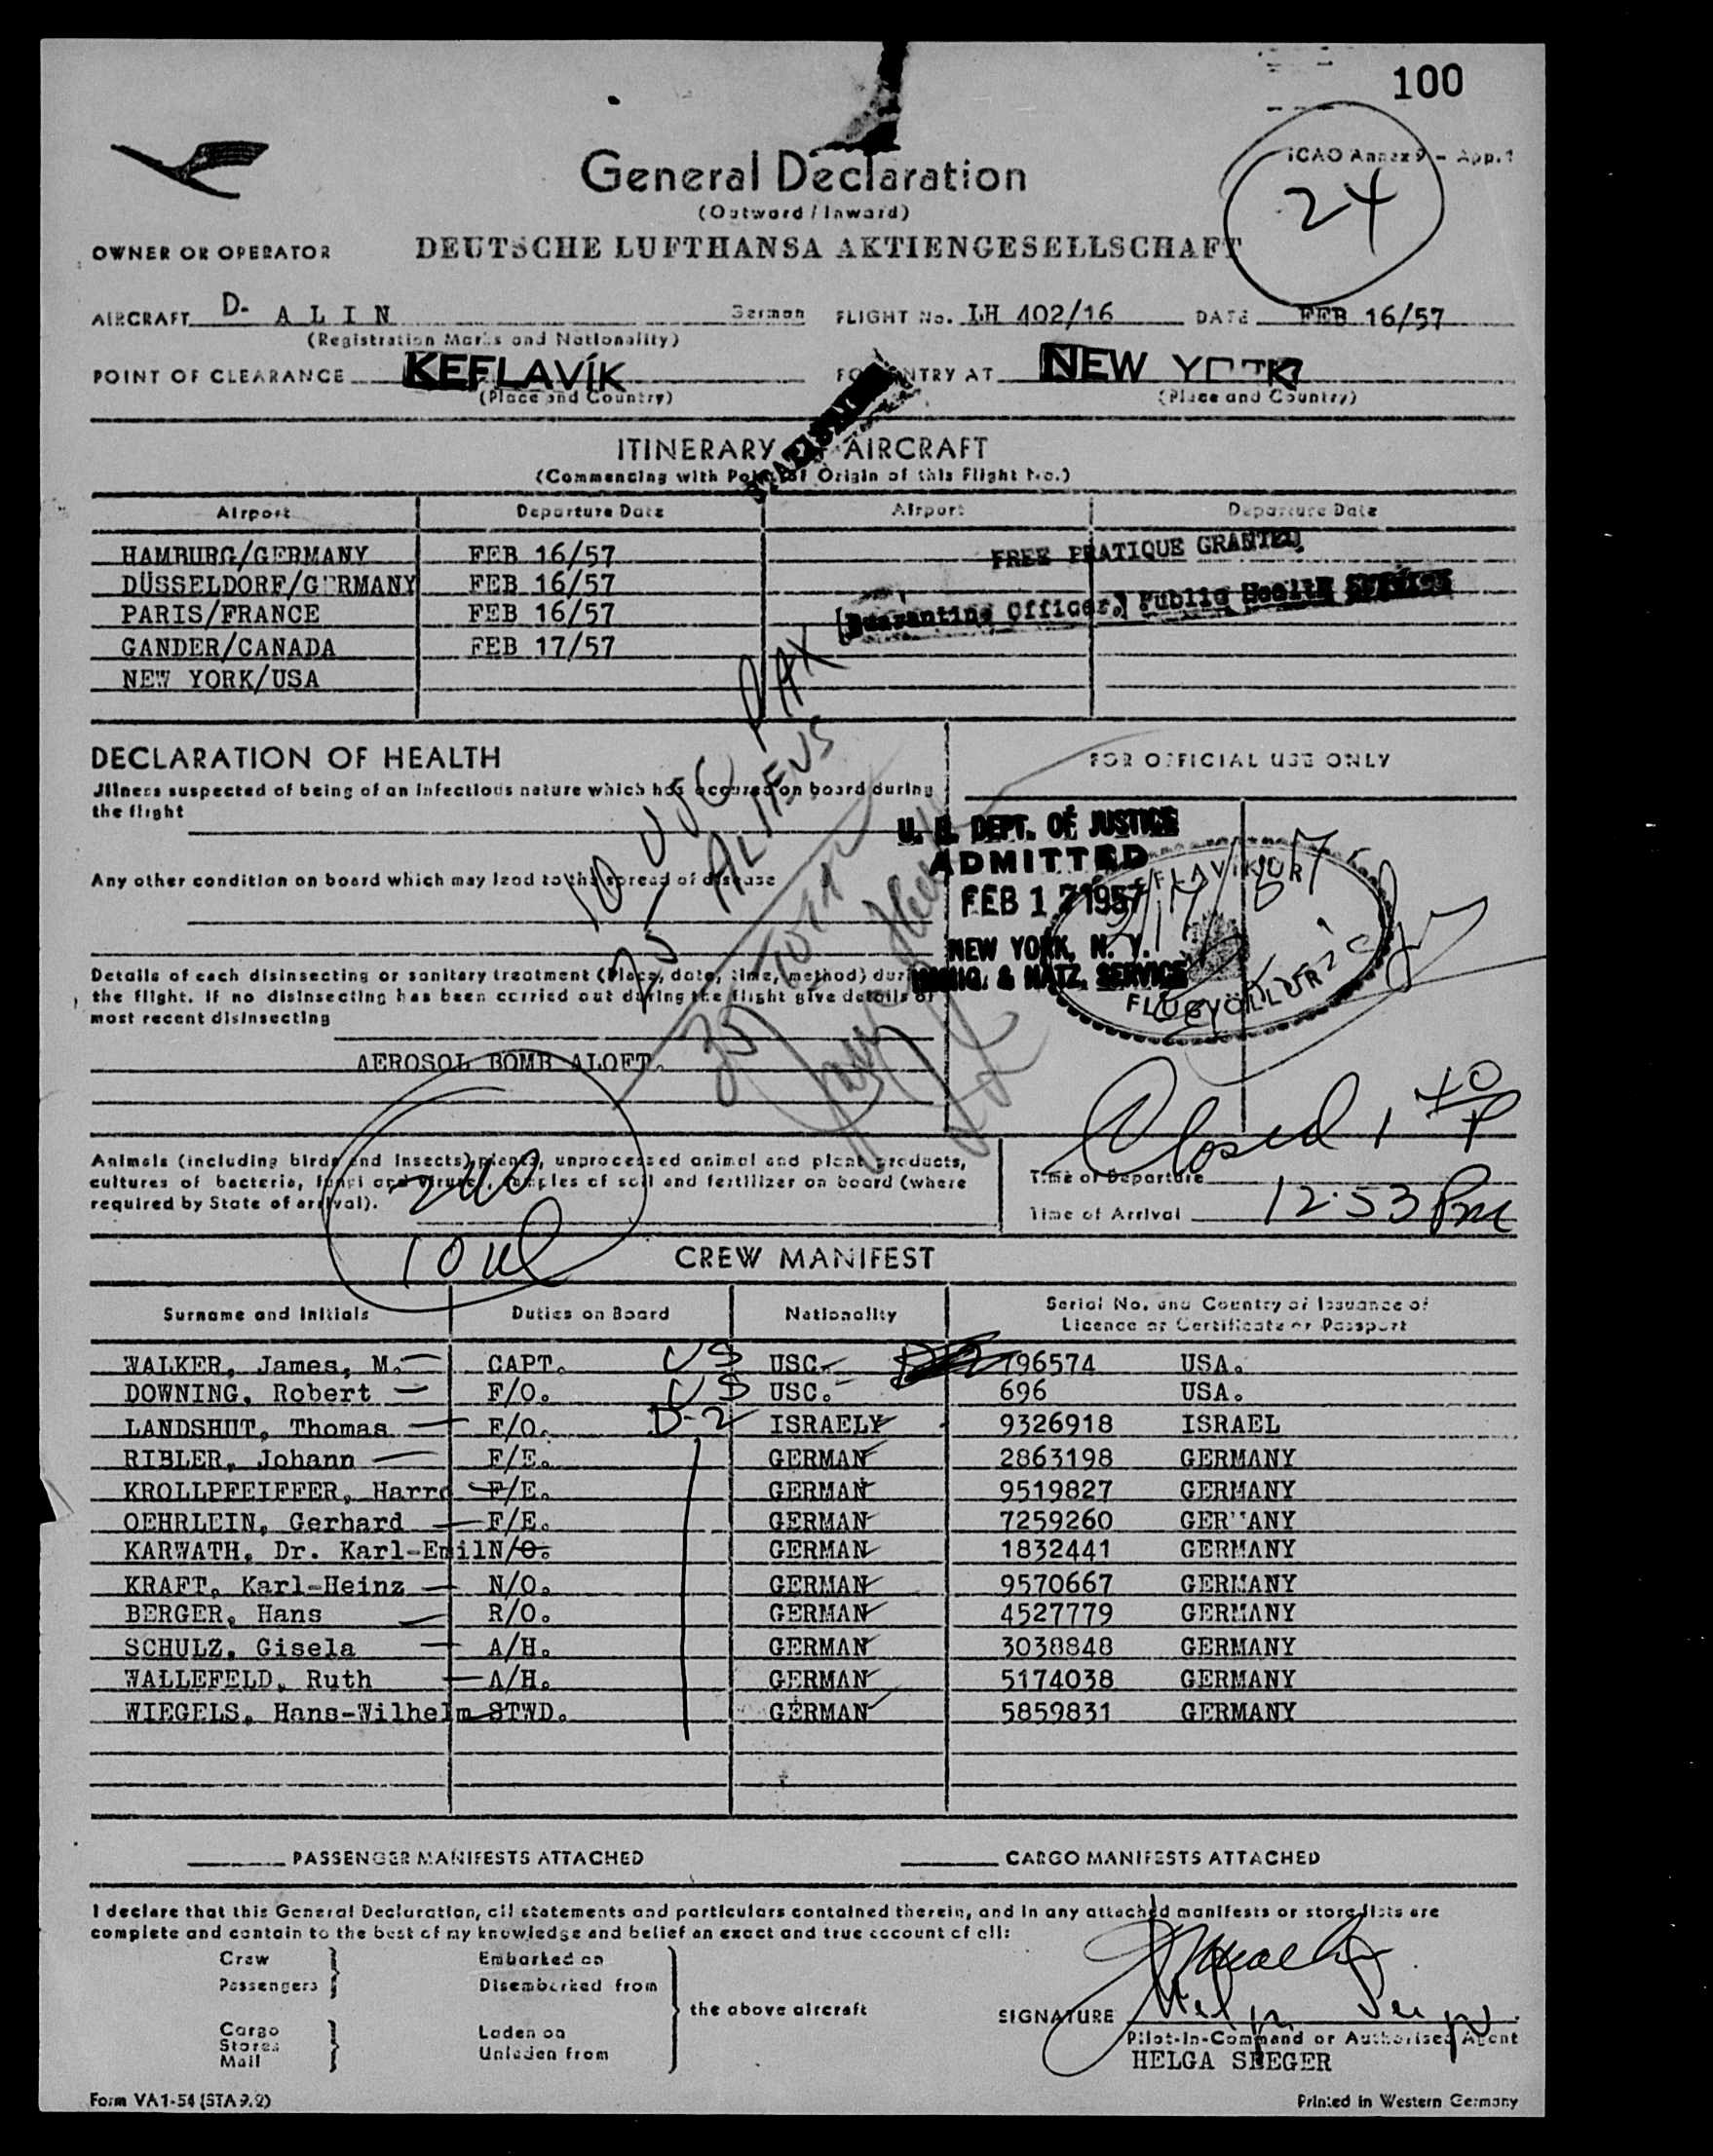 100
ICAO Annex 9 - App. 1
24
General Declaration
(Outward / Inward)
OWNER OR OPERATOR DEUTSCHE LUFTHANSA AKTIENGESELLSCHAFT
AIRCRAFT D- A L I N German FLIGHT No. LH 402/16 DATE FEB 16/57
(Registration Marks and Nationality)
POINT OF CLEARANCE KEFLAVÍK FOR ENTRY AT NEW YORK
(Place and Country) (Place and Country)
ITINERARY OF AIRCRAFT
(Commencing with Point of Origin of this Flight No.)
Airport Departure Date Airport Departure Date
HAMBURG/GERMANY FEB 16/57
DÜSSELDORF/GERMANY FEB 16/57
PARIS/FRANCE FEB 16/57
GANDER/CANADA FEB 17/57
NEW YORK/USA
FREE PRATIQUE GRANTED
Quarantine Officer, Public Health Service
PAX
10 USC
25 ALIENS
35 TOTAL
DECLARATION OF HEALTH
Jllness suspected of being of an infectious nature which has occured on board during
the flight
Any other condition on board which may lead to the spread of disease
Details of each disinsecting or sanitary treatment (Place, date, time, method) during
the flight. If no disinsecting has been carried out during the flight give details of
most recent disinsecting
AEROSOL BOMB ALOFT.
FOR OFFICIAL USE ONLY
U. S. DEPT. OF JUSTICE
ADMITTED
FEB 17 1957
NEW YORK, N. Y.
IMMIG. & NATZ. SERVICE
KEFLAVIKUR
FLUGVÖLLUR
2/17/57
Closed 1 40 P
Animals (including birds and insects) plants, unprocessed animal and plant products,
cultures of bacteria, fungi and viruses, samples of soil and fertilizer on board (where
required by State of arrival).
Time of Departure
Time of Arrival 12:53 Pm
CREW MANIFEST
Surname and Initials Duties on Board Nationality Serial No. and Country of Issuance of
Licence or Certificate or Passport
WALKER, James, M. CAPT. US USC. 796574 USA.
DOWNING, Robert F/O. US USC. 696 USA.
LANDSHUT, Thomas F/O. D-2 ISRAELY 9326918 ISRAEL
RIBLER, Johann F/E. GERMAN 2863198 GERMANY
KROLLPFEIFFER, Harro F/E. GERMAN 9519827 GERMANY
OEHRLEIN, Gerhard F/E. GERMAN 7259260 GERMANY
KARWATH, Dr. Karl-Emil N/O. GERMAN 1832441 GERMANY
KRAFT, Karl-Heinz N/O. GERMAN 9570667 GERMANY
BERGER, Hans R/O. GERMAN 4527779 GERMANY
SCHULZ, Gisela A/H. GERMAN 3038848 GERMANY
WALLEFELD, Ruth A/H. GERMAN 5174038 GERMANY
WIEGELS, Hans-Wilhelm STWD. GERMAN 5859831 GERMANY
PASSENGER MANIFESTS ATTACHED CARGO MANIFESTS ATTACHED
I declare that this General Declaration, all statements and particulars contained therein, and in any attached manifests or store lists are
complete and contain to the best of my knowledge and belief an exact and true account of all:
Crew Embarked on
Passengers Disembarked from
the above aircraft
Cargo Laden on
Stores Unladen from
Mail
SIGNATURE Helga Seeger
Pilot-In-Command or Authorised Agent
HELGA SEEGER
Form VA 1-54 (STA 9.2) Printed in Western Germany